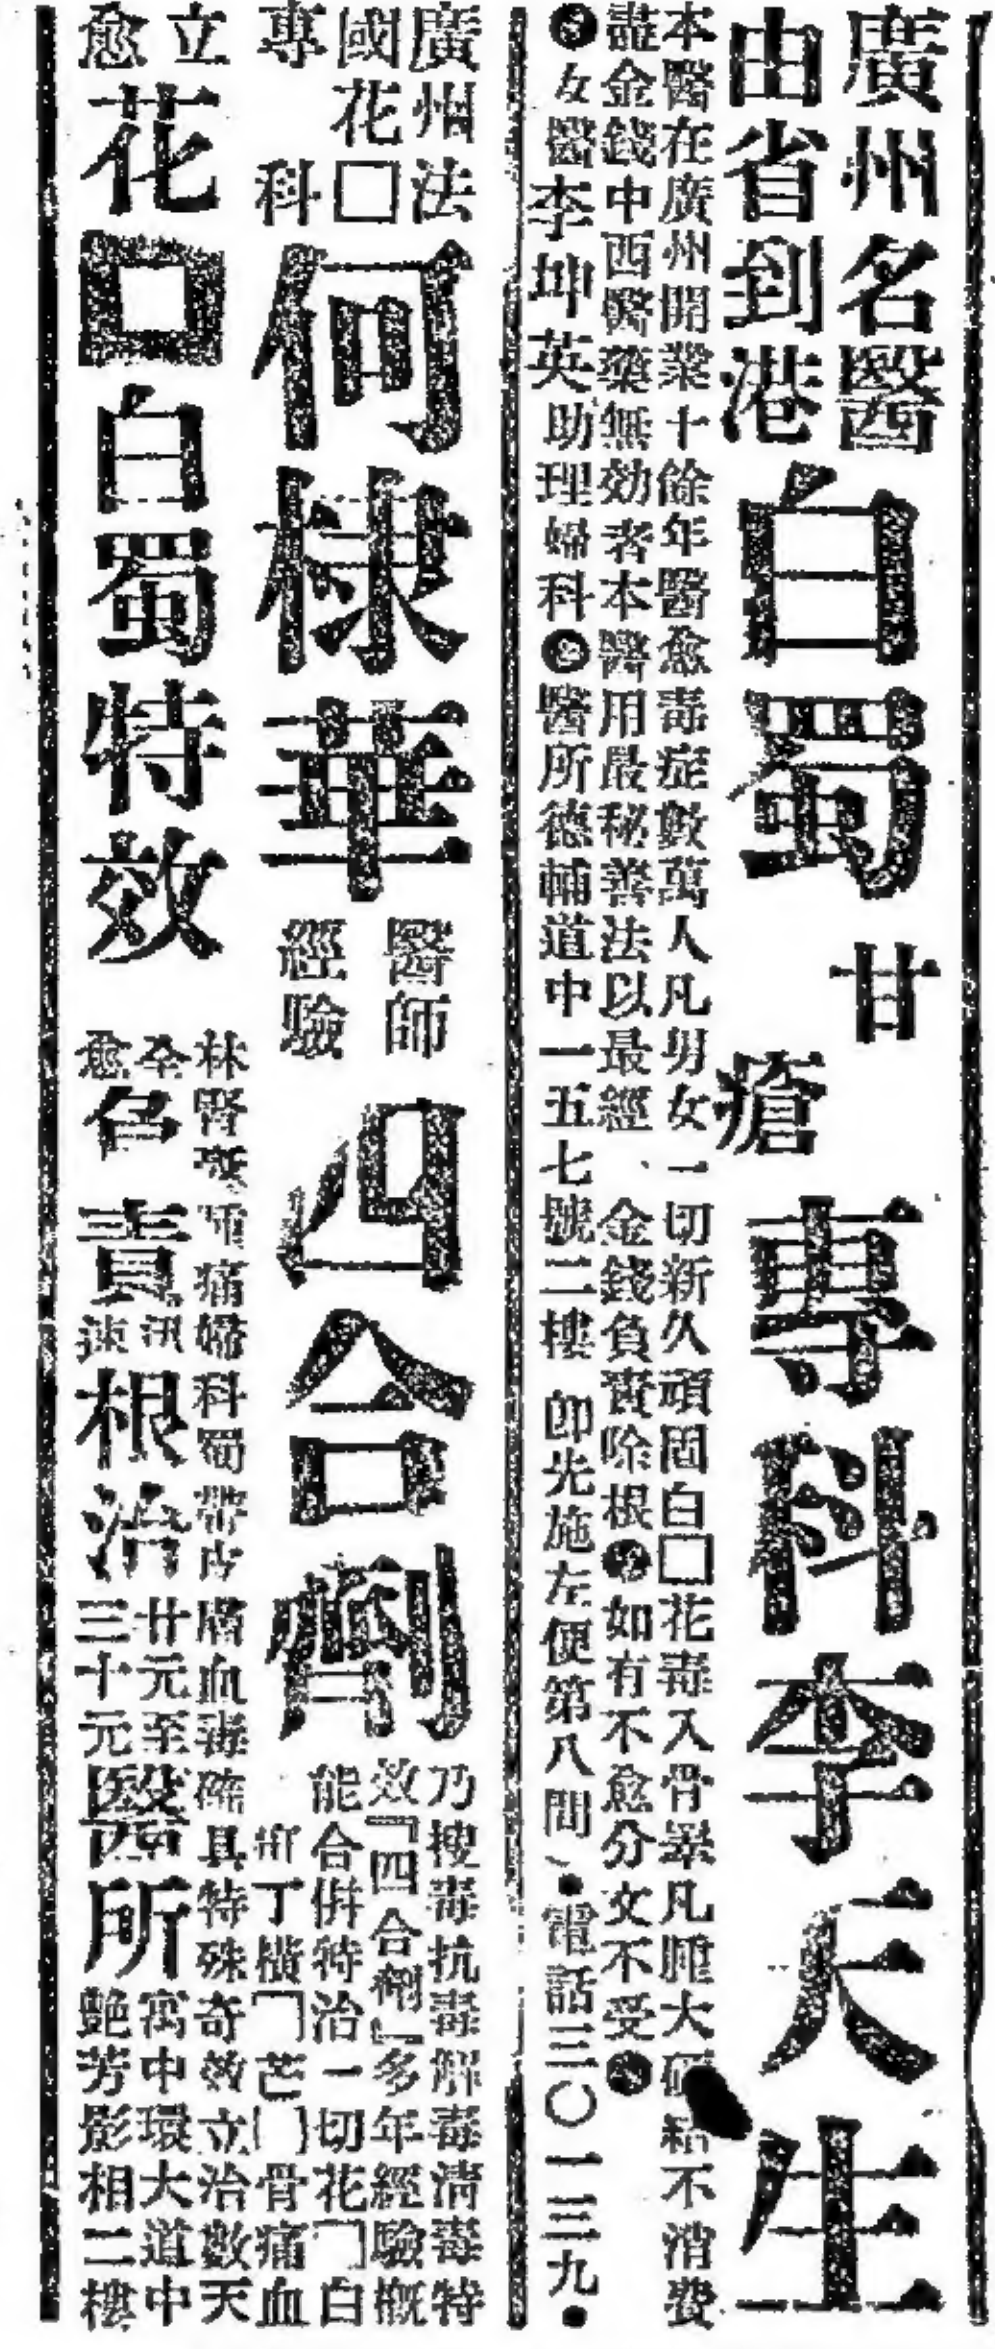 廣州名醫
由省到港
白蜀
甘
瘡
專科李天生
本醫在廣州開業十餘年醫愈毒症數萬人凡男女一切新久頑固白□花毒入骨纍凡腫大硬結不消費
盡金錢中西醫藥無効者本醫用最秘善法以最經、金錢負責除根●如有不愈分文不受●
●女醫李坤英助理婦科●醫所德輔道中一五七號二樓即先施左便第八間、●電話三〇一三九●
廣州法
國花□
專科
何棣華
醫師
經驗
四合劑
乃搜毒抗毒解毒清毒特
效「四合劑」多年經驗概
能合倂特治一切花□白
疔橫□芒□骨痛血
立愈花口白蜀特效
林腎囊痛婦科蜀帶皮膚血毒確具特殊奇效立治數天
全愈包責速汛根治廿元至三十元醫所寓中環大道中
艷芳影相二樓